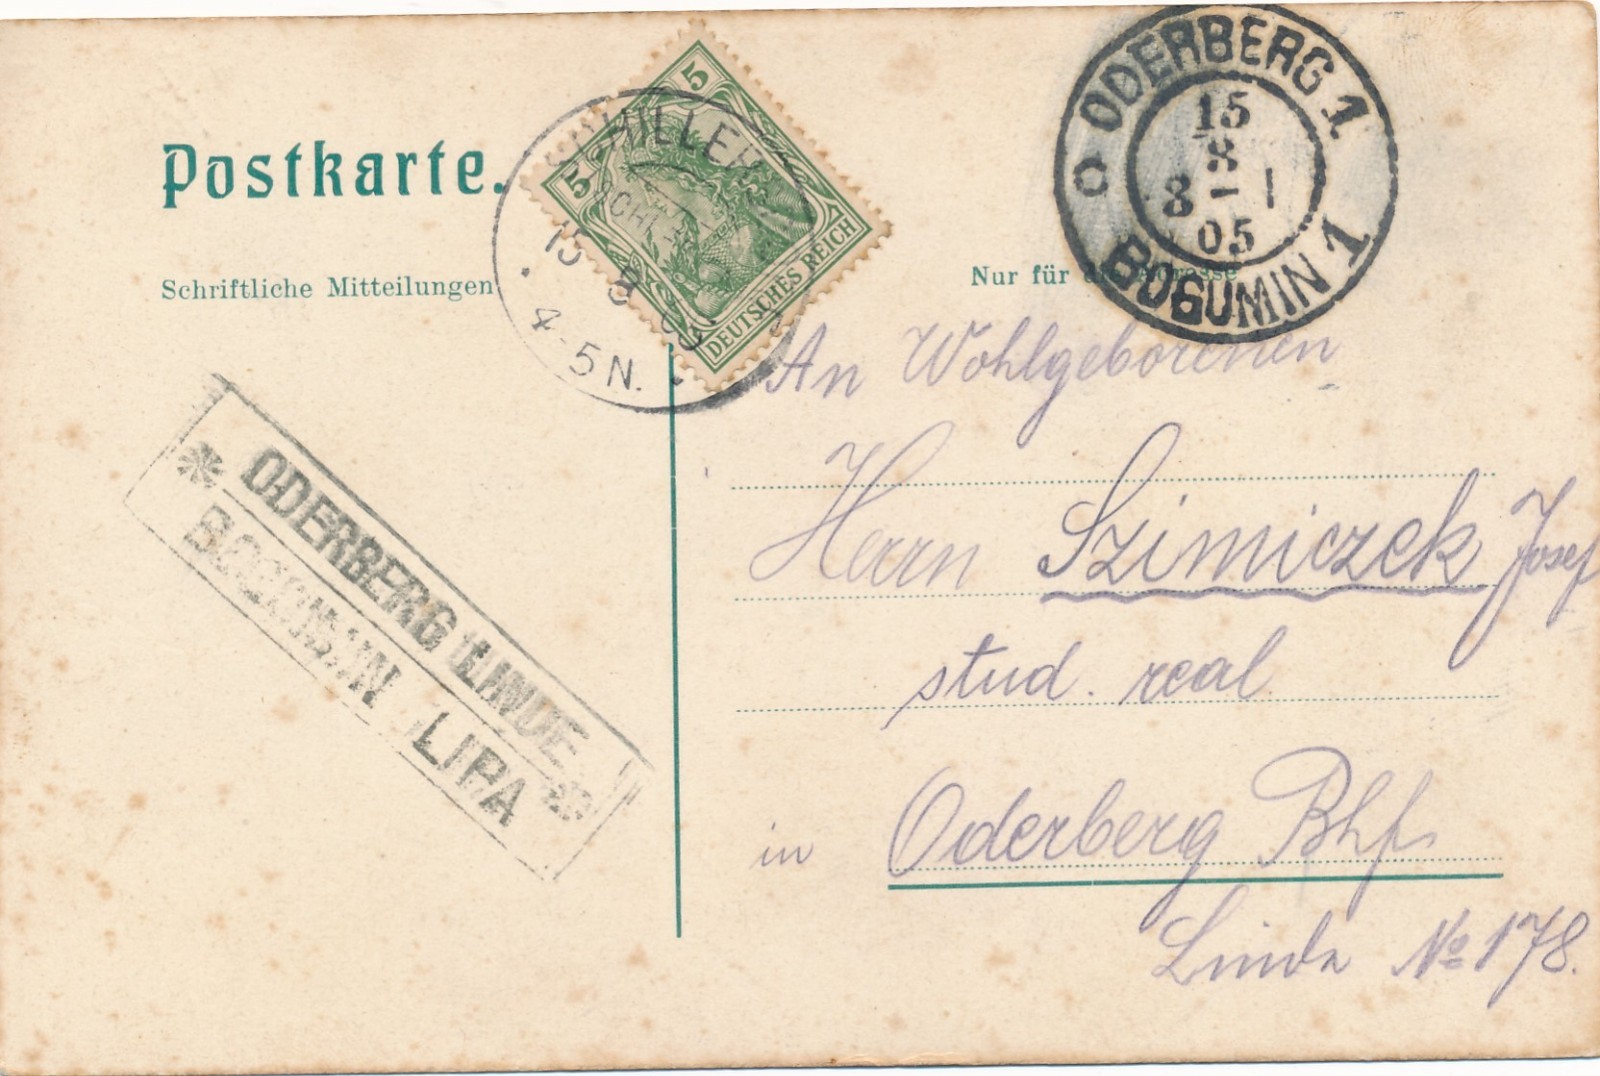 Postkarte.
Schriftliche Mitteilungen
5
5
DEUTSCHES REICH
15 8 05
4-5N.
ODERBERG 1
15
8
8 - 1
05
BOGUMIN 1
Nur für die Adresse
ODERBERG LINDE
BOGUMIN LIPA
An Wohlgeborenen
Herrn Szimiczek Josef
stud. real
in Oderberg Bhf
Linda No 178.